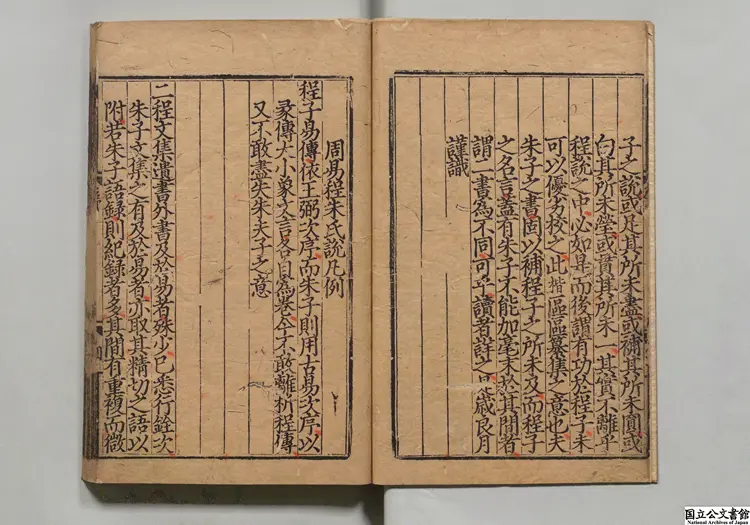 子之說或足其所未盡或補其所未圓或
白其所未瑩或貫其所未一其實不離乎
程說之中必如是而後謂有功於程子未
可以優劣校之此楷區區纂集之意也夫
朱子之書固以補程子之所未及而程子
之名言蓋有朱子不能加毫末於其間者
謂二書爲不同可乎讀者詳之是歲良月
謹識
周易程朱氏說凡例
程子易傳依王弼次序而朱子則用古易次序以
彖傳大小象文言各自爲卷今不敢離析程傳
又不敢盡失朱夫子之意
二程文集遺書外書及於易者殊少已悉行銓次
朱子文集之有及於易者亦取其精切之語以
附若朱子語錄則紀錄者多其間有重複而微
国立公文書館
National Archives of Japan